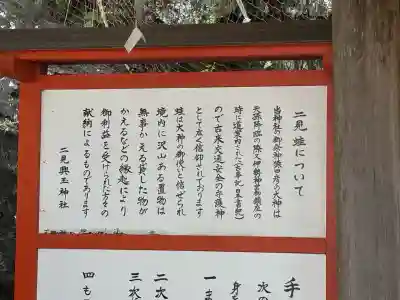 二見蛙について
当神社の御祭神猿田彦の大神は
天孫降臨の際又伊勢神宮御鎮座の
時に道案内された(古事記日本書紀)
ので古来交通安全の守護神
として広く信仰されております
蛙は大神の御使いと信ぜられ
境内に沢山ある置物は
無事かえる貸した物が
かえるなどの縁起により
御利益を受けられた方々の
献納によるものであります
二見興玉神社
手
次の
身を
一ま
二次
三次
四も